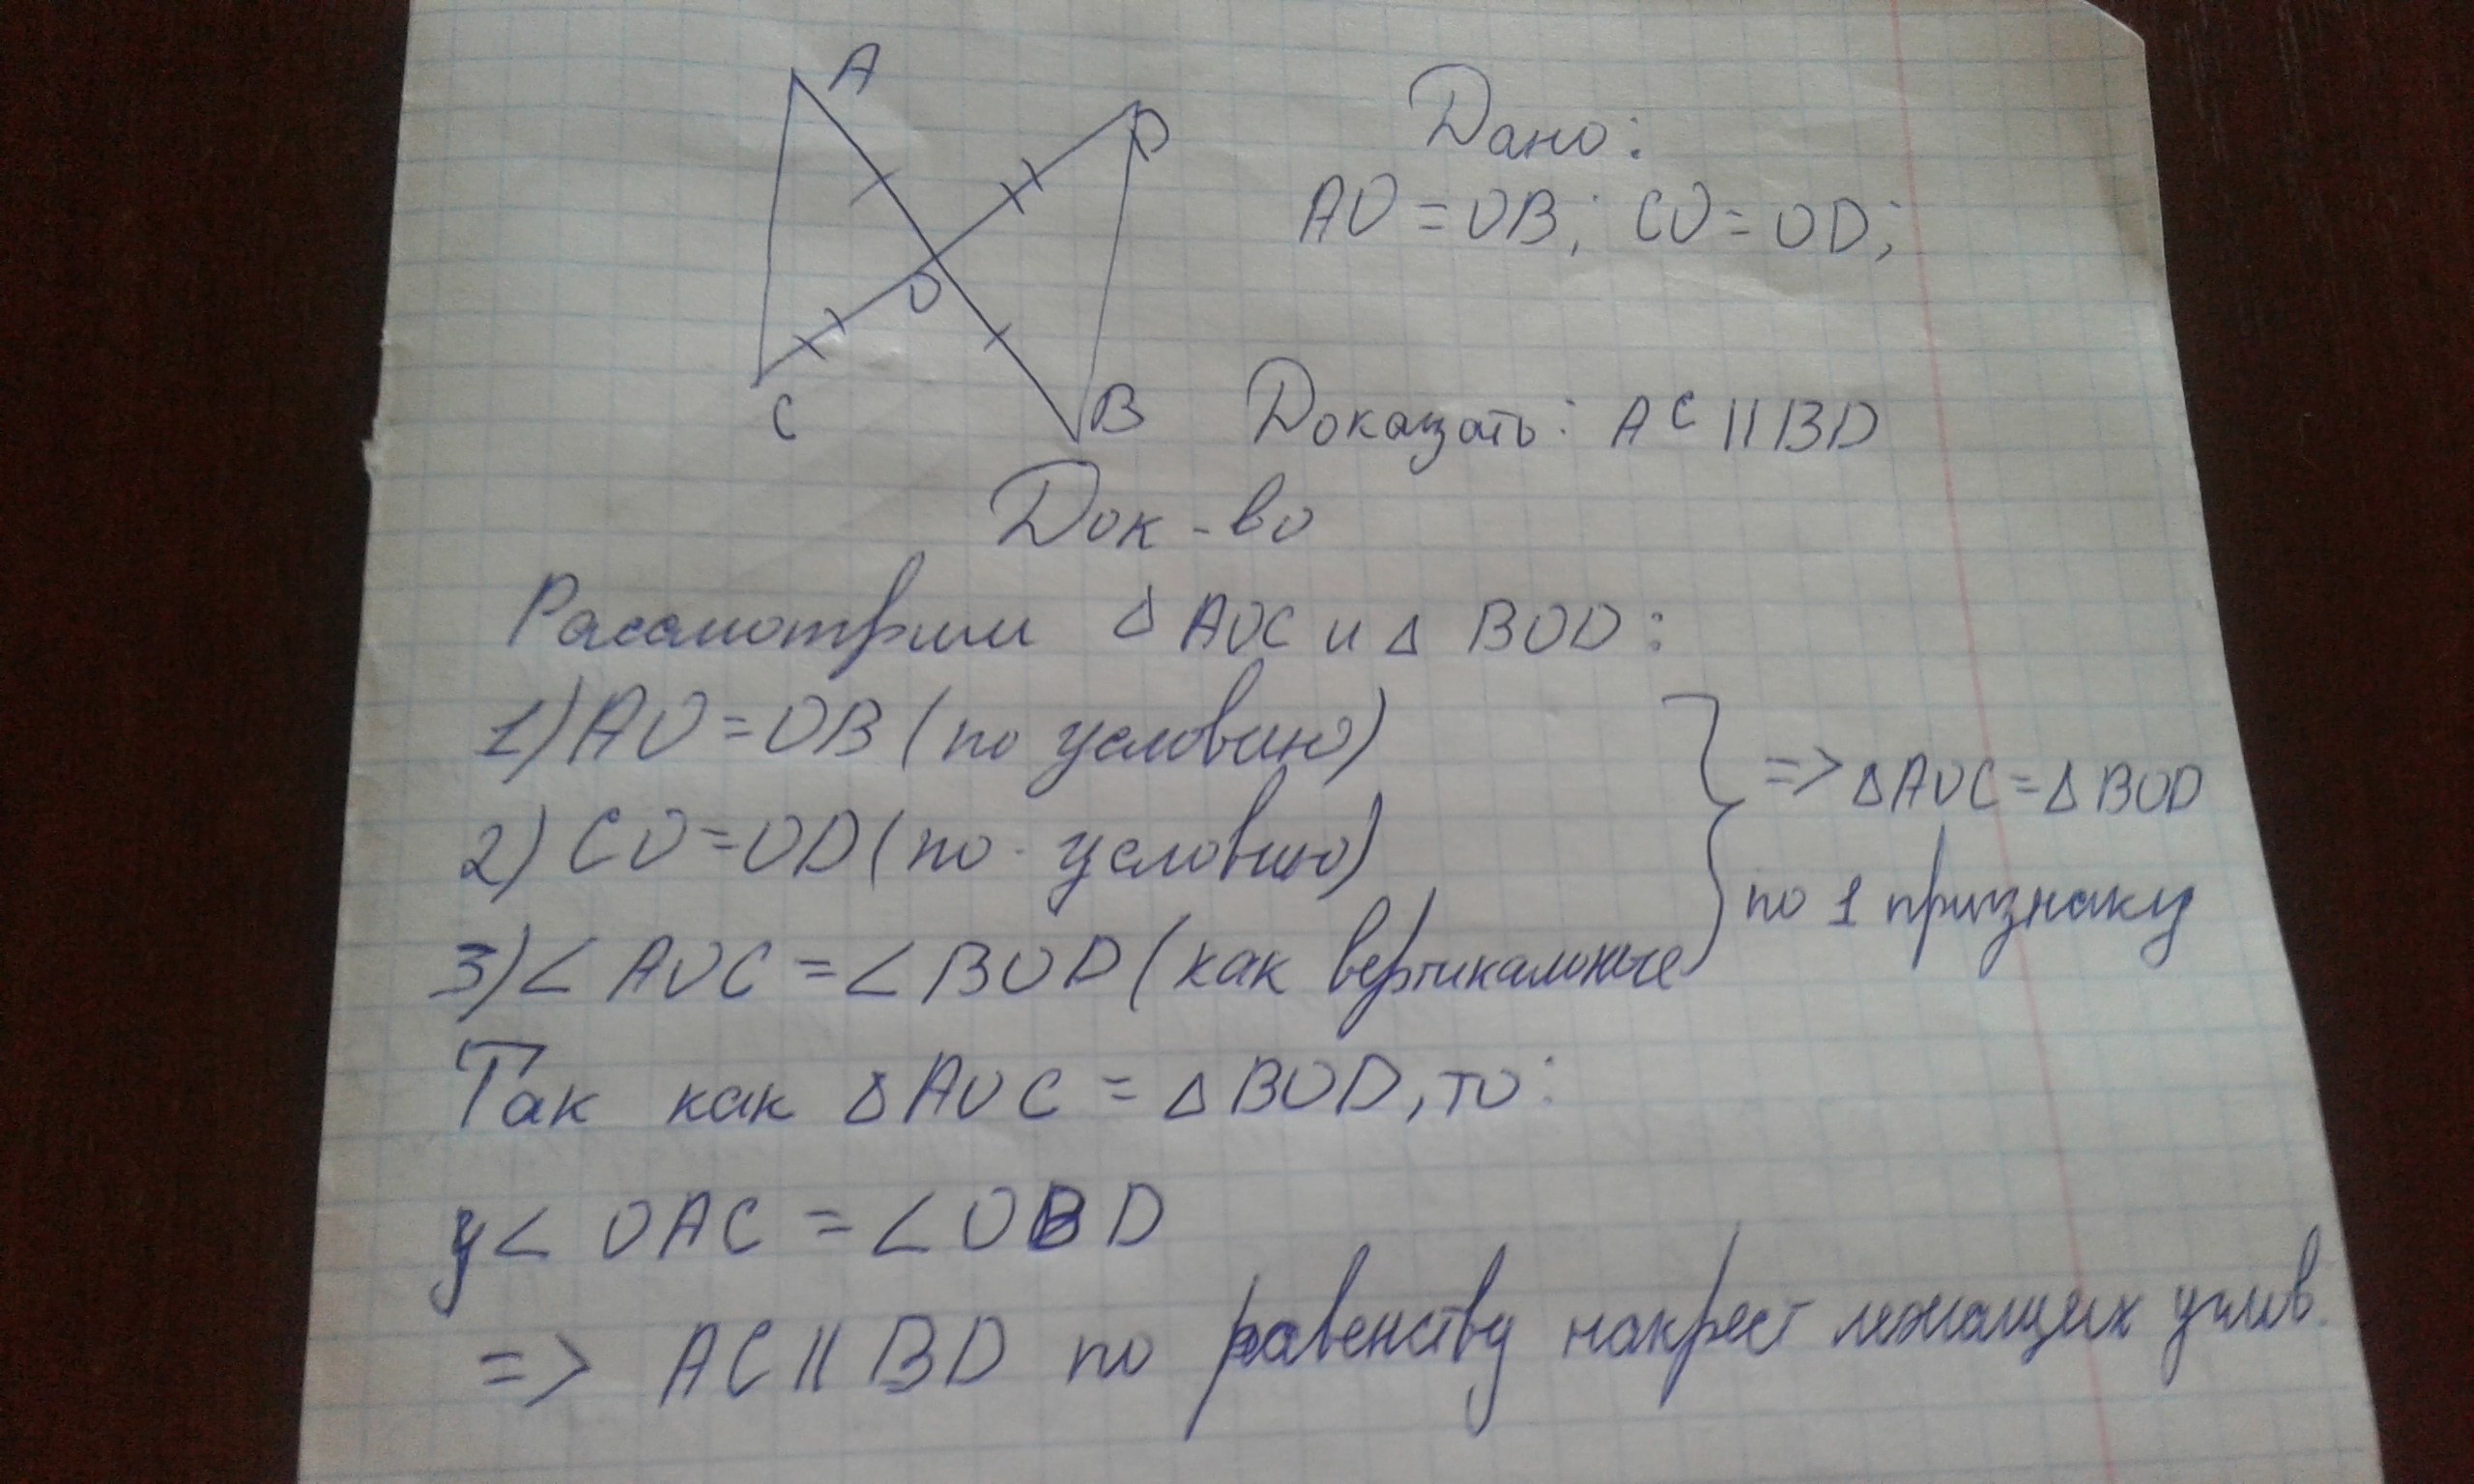 A
D
Дано:
AO = OB; CO = OD;
O
C
B
Доказать: AC || BD
Док-во
Рассмотрим Δ AOC и Δ BOD:
1) AO = OB (по условию)
2) CO = OD (по условию)
3) ∠ AOC = ∠ BOD (как вертикальные
=> Δ AOC = Δ BOD
по 1 признаку
Так как Δ AOC = Δ BOD, то:
у ∠ OAC = ∠ OBD
=> AC || BD по равенству накрест лежащих углов.